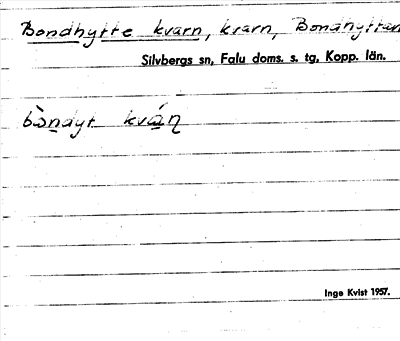 Bondhytte kvarn, kvarn, Bondhyttan
Silvbergs sn, Falu doms. s. tg, Kopp. län.
bòndyt kváɳ
Inge Kvist 1957.